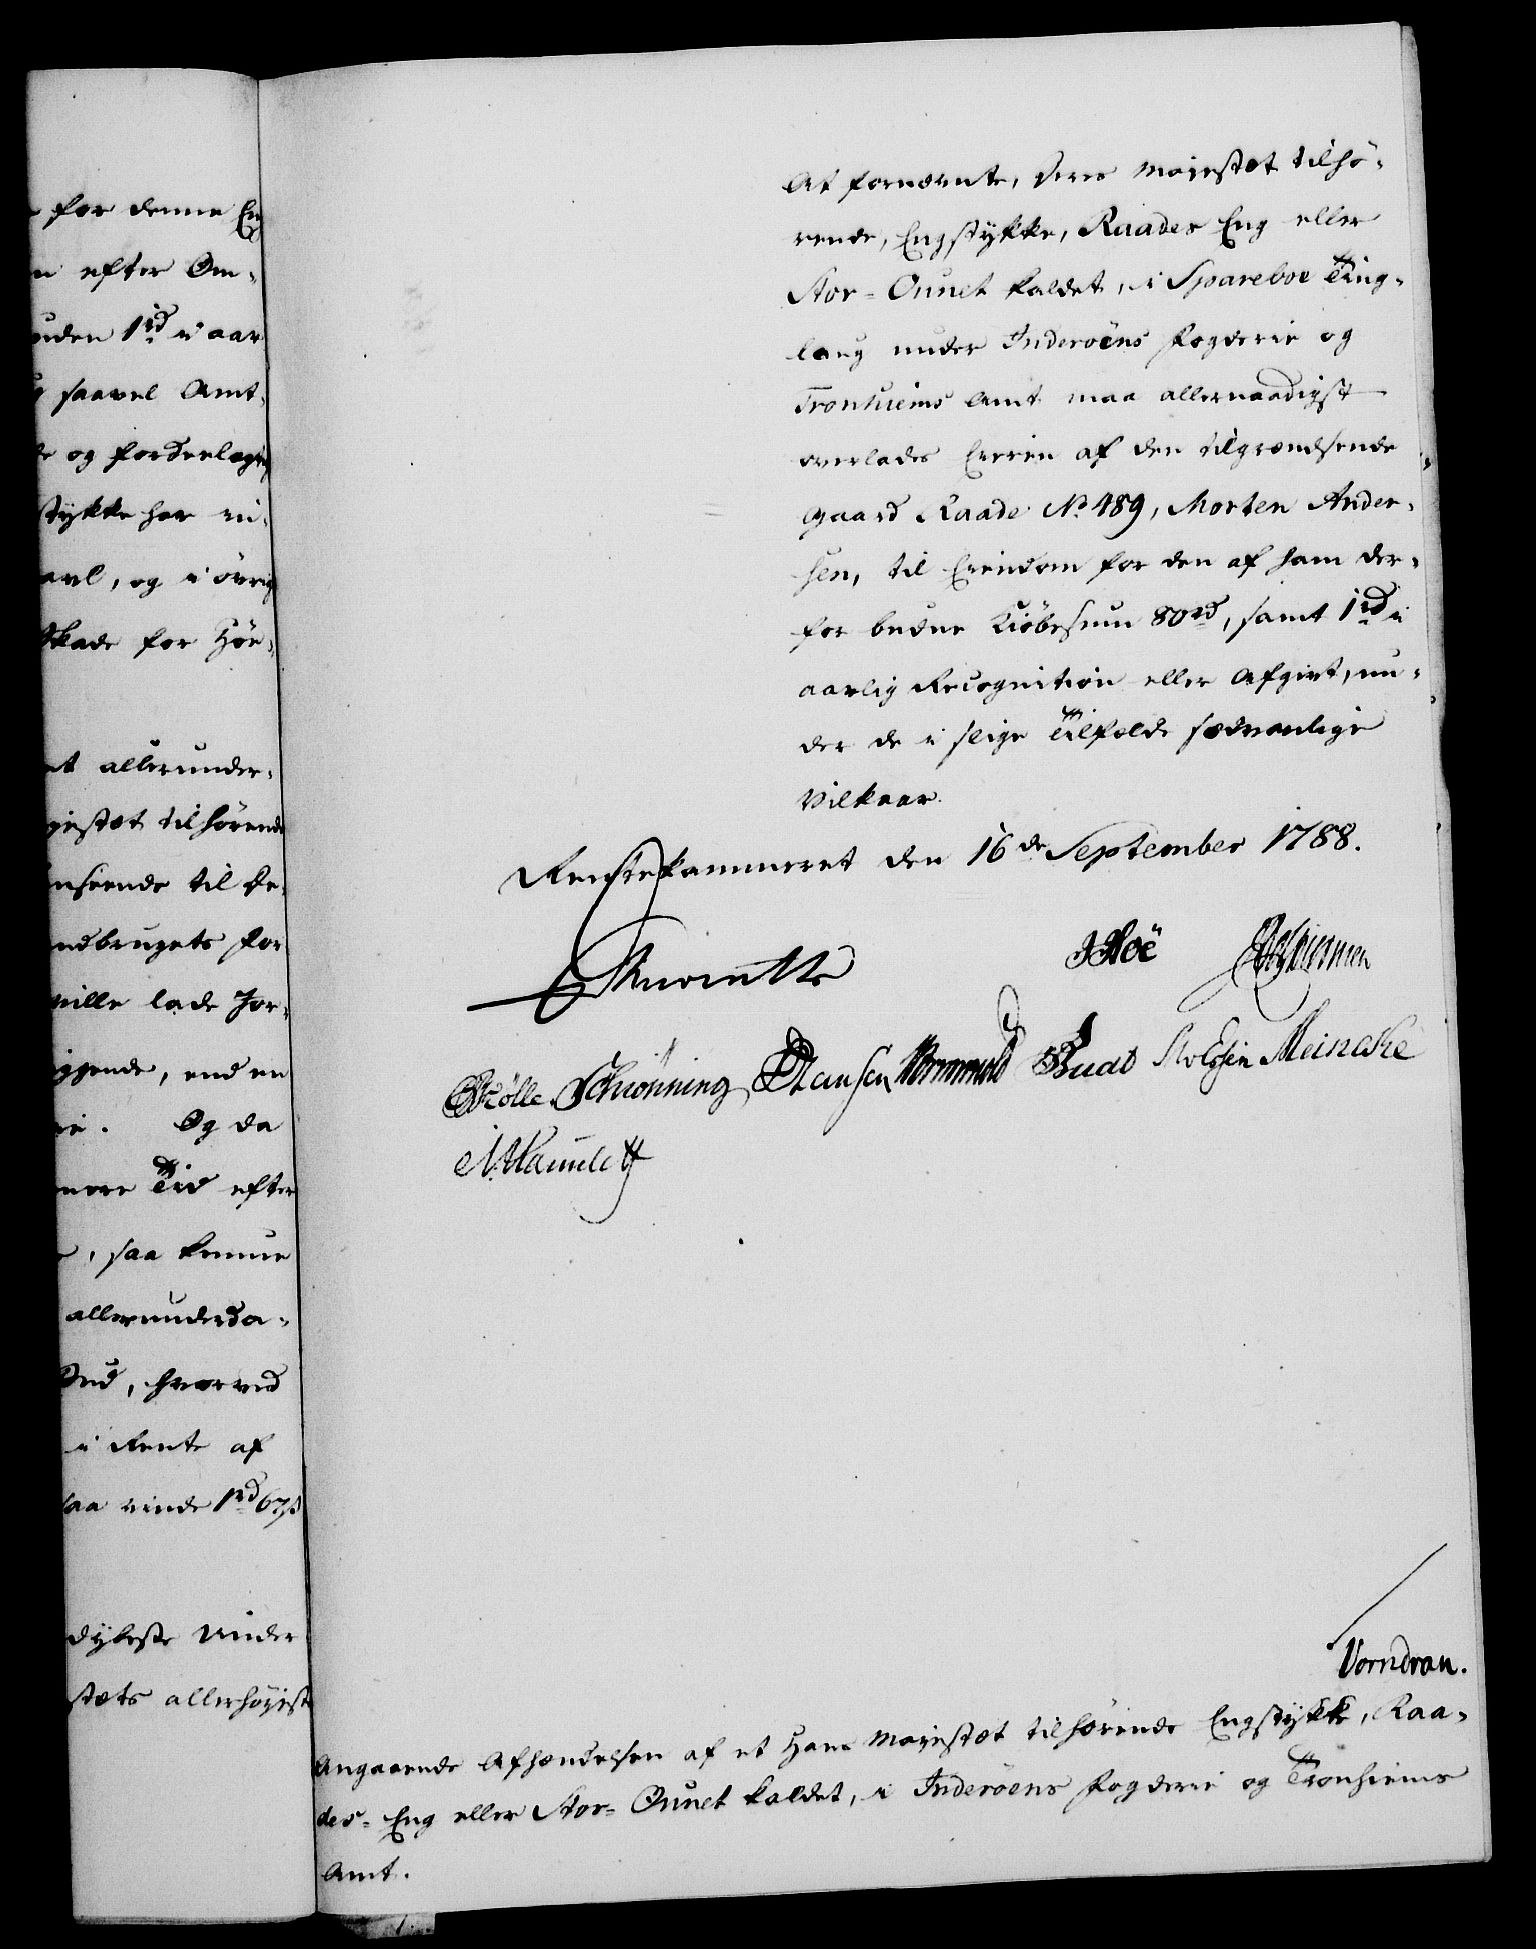 for denne En
efter Om-
uden 1 rd i aar
saavel Amt-
og fordeelagtig
stykke har vi-
avl, og i øvrig
skade for Hør-
et allerunder-
jestæt tilhørende
anseende til Be-
ndbrugets for
ville lade Jor-
iggende, end en
Og da
mere Tid efter
, saa kunne
allerunderda-
Bud, hvorved
i Rente af
saa vinde 1 rd 67 s
dybeste Under
stæts allerhøyeste
At fornevnte, Deres Majestæt tilhø-
rende, Engstykke, Raades Eng eller
Stor-Ounet kaldet, i Spareboe Ting-
laug under Inderøens Fogderie og
Tronhiems Amt maa allernaadigst
overlades Eieren af den tilgrændsende
Gaard Raade No 489, Morten Ander-
sen, til Eiendom for den af ham der-
for budne Kiøbesum 80 rd, samt 1 rd i
aarlig Recognition eller Afgivt, un-
der de i slige Tilfælde sædvanlige
Vilkaar.
Rentekammeret den 16de September 1788.
JHoë
Schiønning Hansen Wormskiold Meincke
Vorndran.
Angaaende Afhændelsen af et Hans Majestæt tilhørende Engstykke, Raa-
des-Eng eller Stor-Ounet kaldet, i Inderøens Fogderie og Tronhiems
Amt.